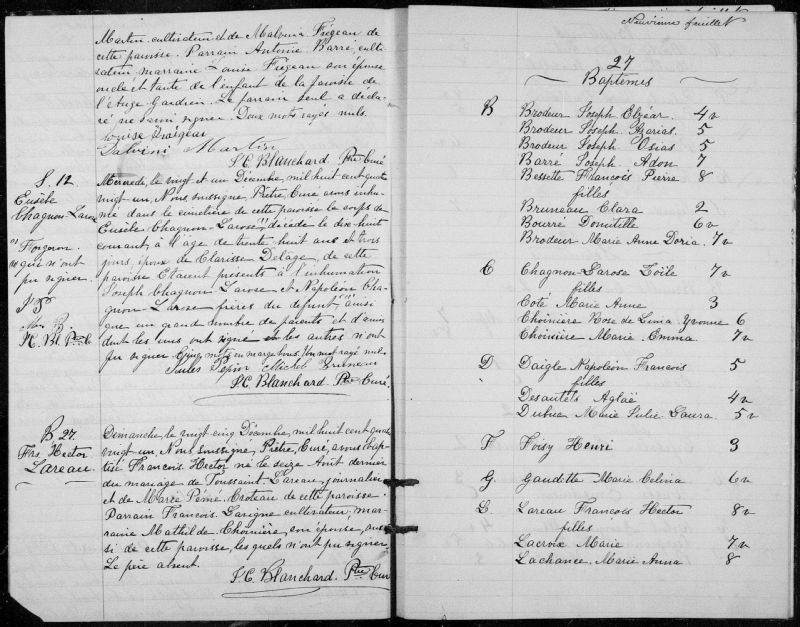 Martin cultivateur et de Malvina Fregeau de
cette paroisse. Parrain Antoine Barré, culti-
vateur marraine Louise Fregeau son épouse
oncle et tante de l'enfant de la paroisse de
l'Ange Gardien. Le parrain seul a décla-
ré ne savoir signer. Deux mots rayés nuls.
Louise Fraigeau
Martin
J. C. Blanchard Ptre Curé
S. 12.
Eusèbe
Chagnon-Larose
qui n'ont
pu signer
J. C. Bl. Ptre C
Mercredi, le vingt et un Décembre, mil huit cent quatre
vingt-un, Nous soussigné, Prêtre, Curé avons inhu-
mé dans le cimetière de cette paroisse le corps de
Eusèbe Chagnon-Larose, décédé le dix-huit
courant, à l'âge de trente huit ans et trois
jours, époux de Clarisse Delage, de cette
paroisse. Etaient présents à l'inhumation
Joseph Chagnon-Larose et Napoléon Cha-
gnon-Larose frères du defunt, ainsi
que un grand nombre de parents et d'amis
dont les uns ont signé et les autres n'ont
pu signer. Cinq mots en marge bons. Un mot rayé nul
Jules Pepin Michel Bruneau
J. C. Blanchard Ptre Curé.
B 27.
Frs. Hector
Lareau.
Dimanche, le vingt cinq Décembre, mil huit cent quatre
vingt-un, Nous soussigné, Prêtre, Curé, avons bap-
tisé François Hector né le seize Août dernier
du mariage de Toussaint Lareau, journalier
et de Marie Croteau de cette paroisse.
Parrain François Lavigne cultivateur, mar-
raine Mathilde Choinière, son épouse, aus-
si de cette paroisse, lesquels n'ont pu signer
Le père absent.
J. C. Blanchard. Ptre Curé
Neuvième feuillet
27
Baptêmes
B Brodeur Joseph Elzéar. 4v
Brodeur Joseph 5
Brodeur Joseph Osias 5
Barré Joseph Adon 7
Bessette Francois Pierre 8
filles
Bruneau Clara 2
Bourré Domitille 6v
Brodeur Marie Anne Doria 7v
C Chagnon-Larose Zoïle 7v
filles
Coté Marie Anne 3
Choinière Rose de Lima Yvonne 6
Choinière Marie Emma 7v
D Daigle Napoléon Francois 5
filles
Desautels Aglaë 4v
Dubuc Marie Julie Laura 5v
F Foisy Henri 3
G. Gauditte Marie Celina 6v
L. Lareau Francois Hector 8v
filles
Lacroix Marie 7v
Lachance Marie Anna 8